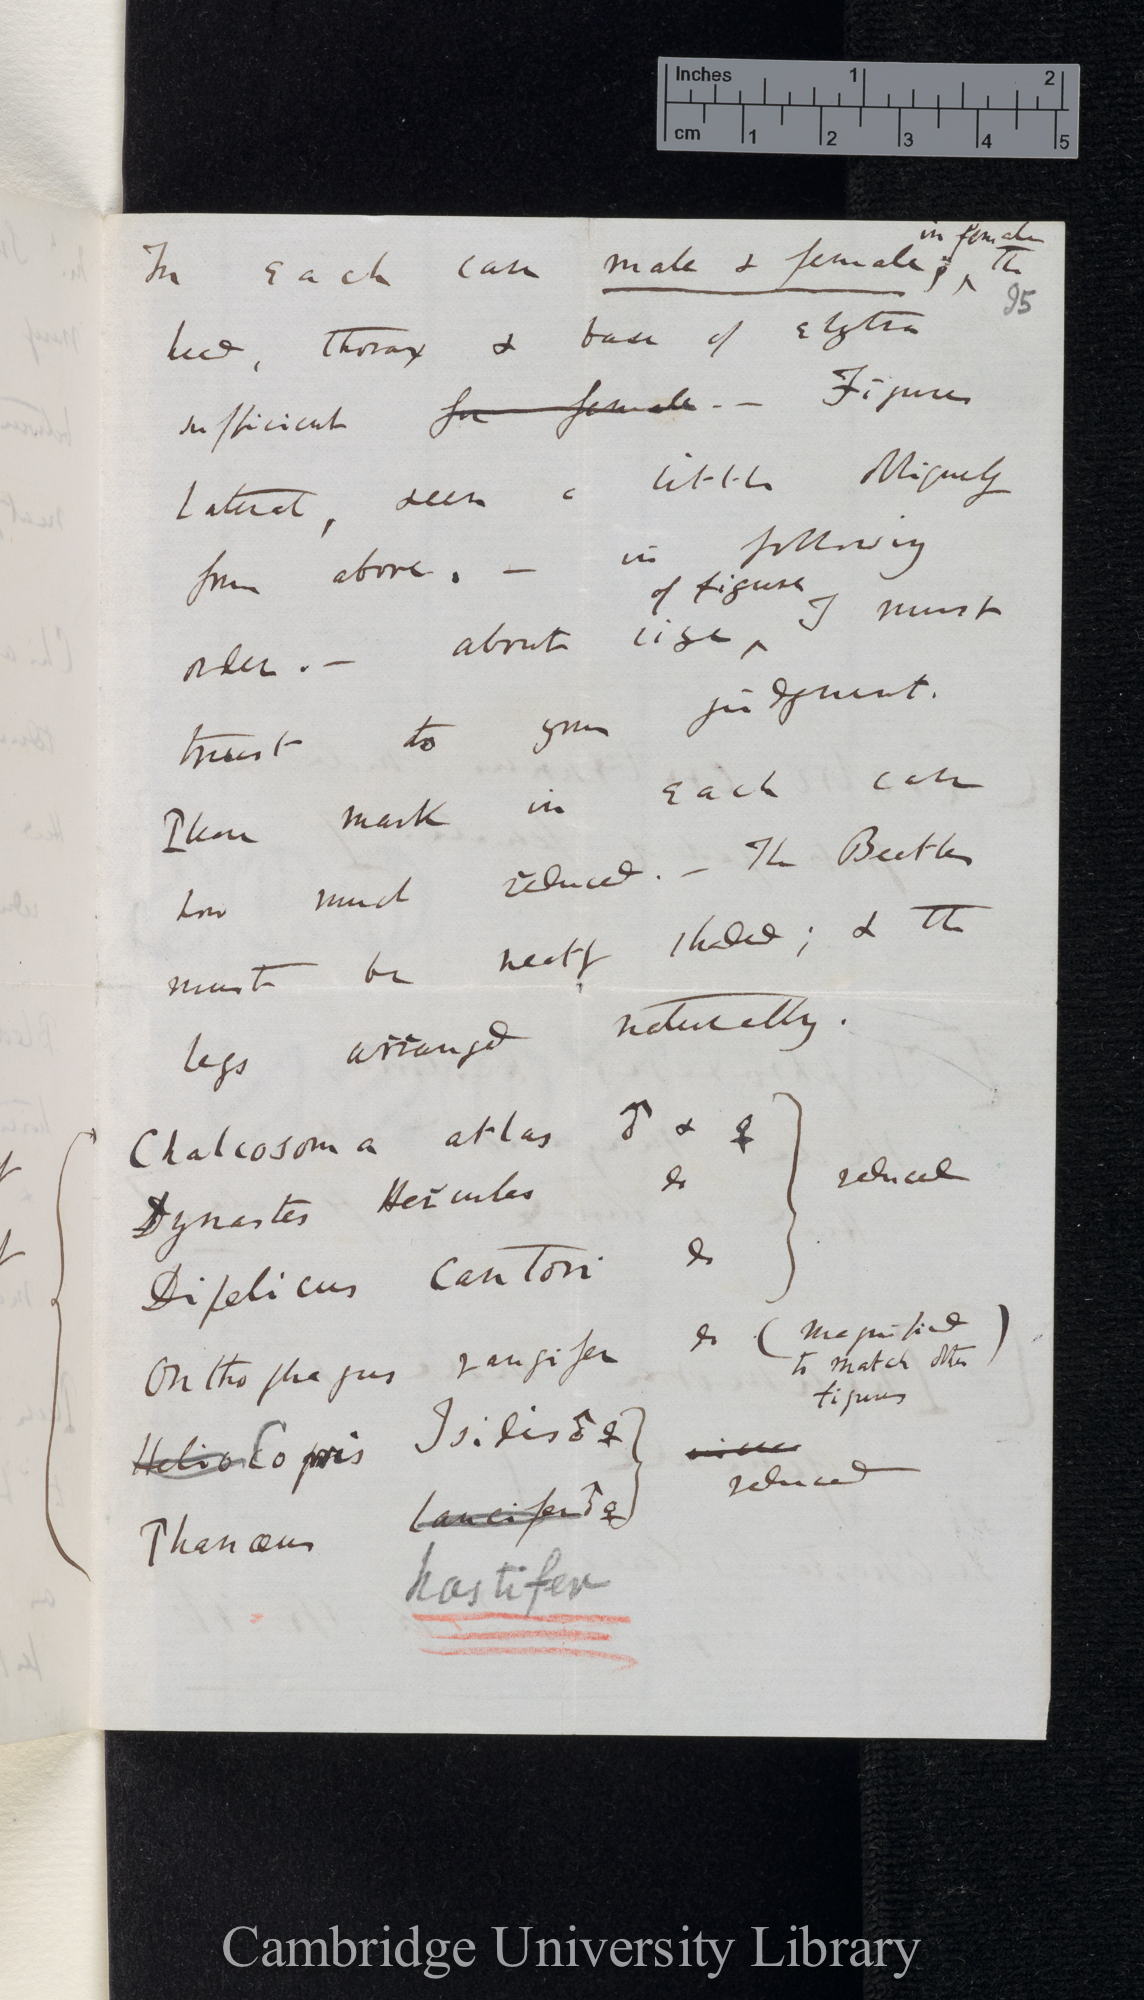 Inches 1 2
cm 1 2 3 4 5
in female
In each case male & female; ^ the
95
head, thorax & base of elytra
sufficient for female. — Figures
lateral, seen a little obliquely
from above. — in following
of figure
order. — about size ^ I must
trust to your judgment.
Please mark in each case
how much reduced. — The Beetles
must be neatly shaded; & the
legs arranged naturally.
Chalcosoma atlas ♂ & ♀
Dynastes Hercules do reduced
Dipelicus Cantori do
Onthophagus rangifer do (magnified
to match other
figures)
Helio Copris Isidis ♂ ♀
reduced
Phanæus lancifer ♂ ♀
hastifer
Cambridge University Library